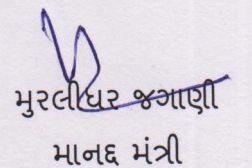 મુરલીધર જગાણી
માનદ્દ મંત્રી